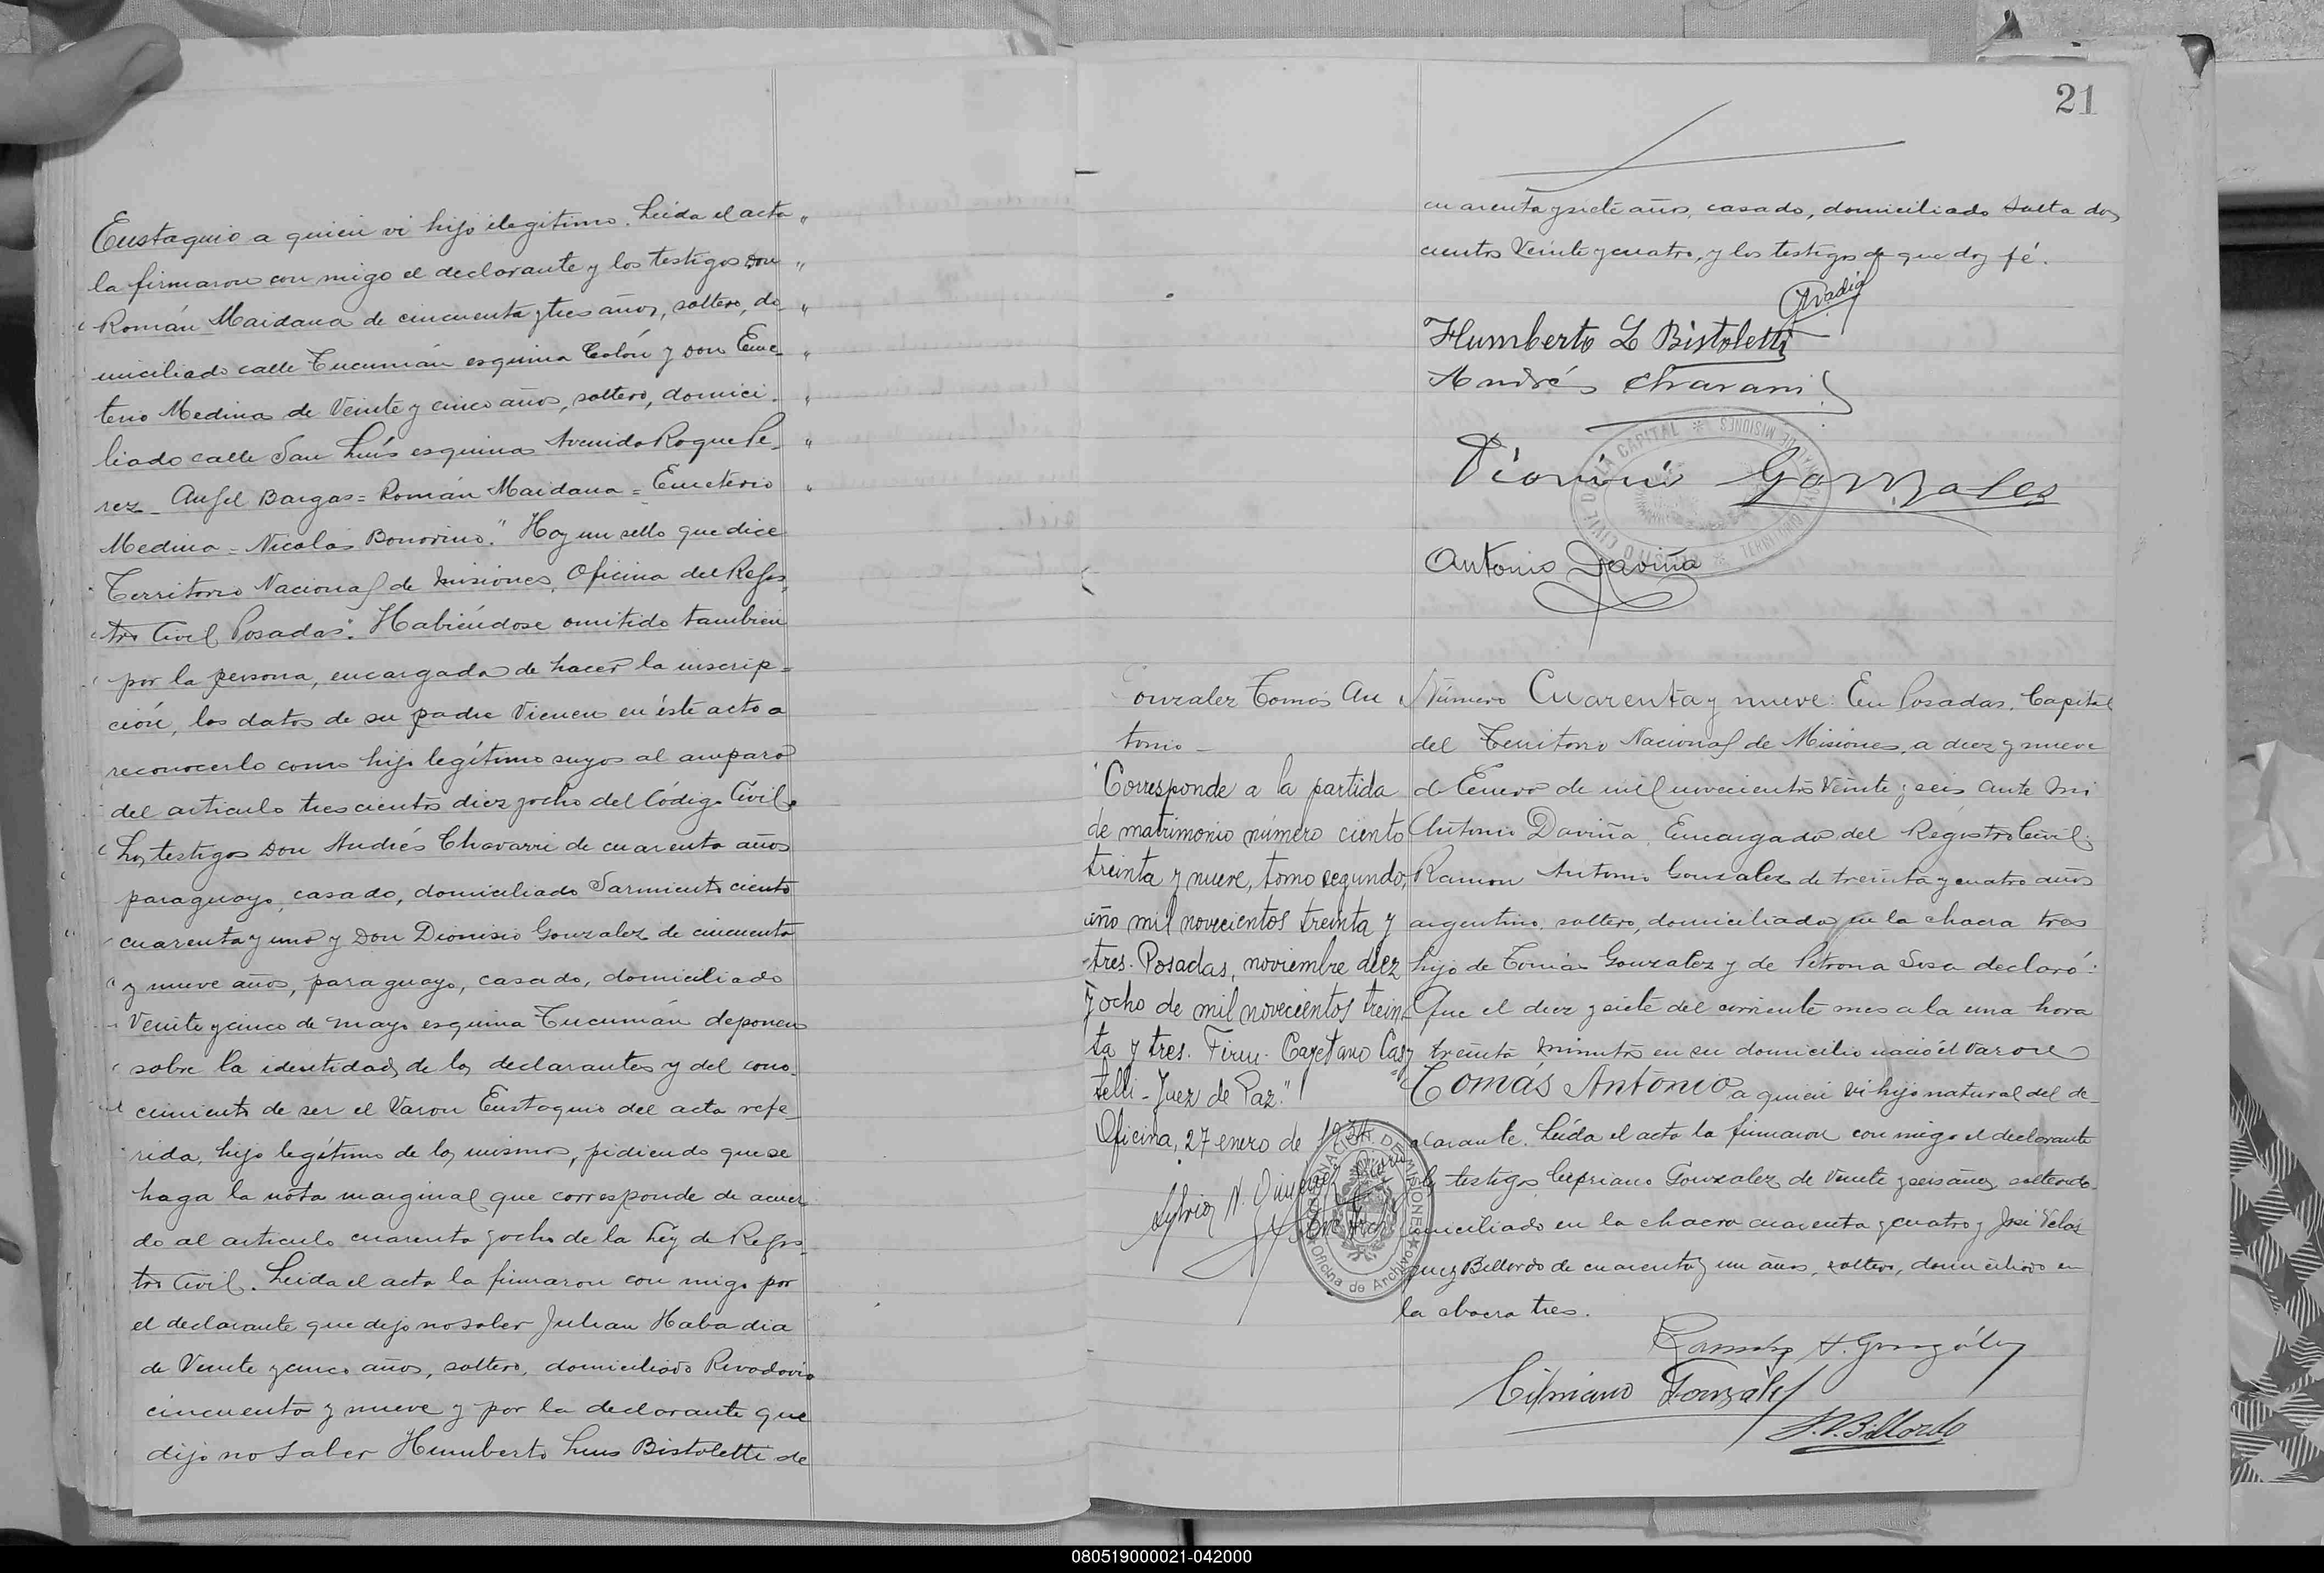 Eustaquio a quien vi hijo ilegitimo. Leida el acta "
la firmaron con migo el declarante y los testigos Don "
Román Maidana de cincuenta y tres años, soltero, do- "
miciliado calle Tucumán esquina Colón y Don Eme- "
terio Medina de Veinte y cinco años, soltero, domici- "
liado calle San Luís esquina Avenida Roque Pe- "
rez - Anjel Bargas = Román Maidana = Emeterio "
Medina = Nicolas Bonorino." Hay un sello que dice
Territorio Nacional de Misiones, Oficina del Rejis-
tro Civil Posadas". Habiéndose omitido tambien
por la persona, encargada de hacer la inscrip-
ción, los datos de su padre Vienen en éste acto a
reconocerlo como hijo legítimo suyos al amparo
del articulo trescientos diez y ocho del Código Civil.
Los testigos Don Andrés Chavarri de cuarenta años
paraguayo, casado, domiciliado Sarmiento ciento
cuarenta y uno y Don Dionisio Gonzalez de cincuenta
y nueve años, paraguayo, casado, domiciliado
Veinte y cinco de mayo esquina Tucumán deponen
sobre la identidad de los declarantes y del cono-
cimiento de ser el Varon Eustaquio del acta refe-
rida, hijo legítimo de los mismos, pidiendo que se
haga la nota marginal que corresponde de acuer-
do al articulo cuarenta y ocho de la Ley de Rejis-
tro Civil. Leida el acta la firmaron con migo por
el declarante que dijo no saber Julian Habadia
de Veinte y cinco años, soltero, domiciliado Rivadavia
cincuenta y nueve y por la declarante que
dijo no saber Humberto Luis Bistoletti de
21
cuarenta y siete años, casado, domiciliado Salta dos
cientos Veinte y cuatro, y los testigos de que doy fé.
Humberto L Bistoletti
Andrés Chavarri
Dionicio Gonzales
REGISTRO CIVIL DE LA CAPITAL * TERRITORIO NACIONAL DE MISIONES *
Antonio Daviña
onzalez Tomás An
tonio -
"Corresponde a la partida
de matrimonio número ciento
treinta y nueve, tomo segundo,
año mil novecientos treinta y
tres. Posadas, noviembre diez
y ocho de mil novecientos trein-
ta y tres. Firm. Cayetano Cas-
telli - Juez de Paz."
Oficina, 27 enero de 1934.
DE MISIONES * Oficina de Archivo *
Número Cuarenta y nueve: En Posadas, Capital
del Territorio Nacional de Misiones, a diez y nueve
de Enero de mil novecientos Veinte y seis ante mi
Antonio Daviña, Encargado del Registro Civil:
Ramon Antonio Gonzalez de treinta y cuatro años
argentino, soltero, domiciliado en la chacra tres
hijo de Tomás Gonzalez y de Petrona Sosa declaró:
Que el diez y siete del corriente mes a la una hora
y treinta minutos en su domicilio nació el Varon
Tomás Antonio a quien vi hijo natural del de-
clarante. Leida el acta la firmaron con migo el declarante
y los testigos Cipriano Gonzalez de Veinte y seis años, soltero do-
miciliado en la chacra cuarenta y cuatro y José Velas
quez Billordo de cuarenta y un años, soltero, domiciliado en
la chacra tres.
Ramón A. González
Cipriano González
J.V. Billordo
080519000021-042000